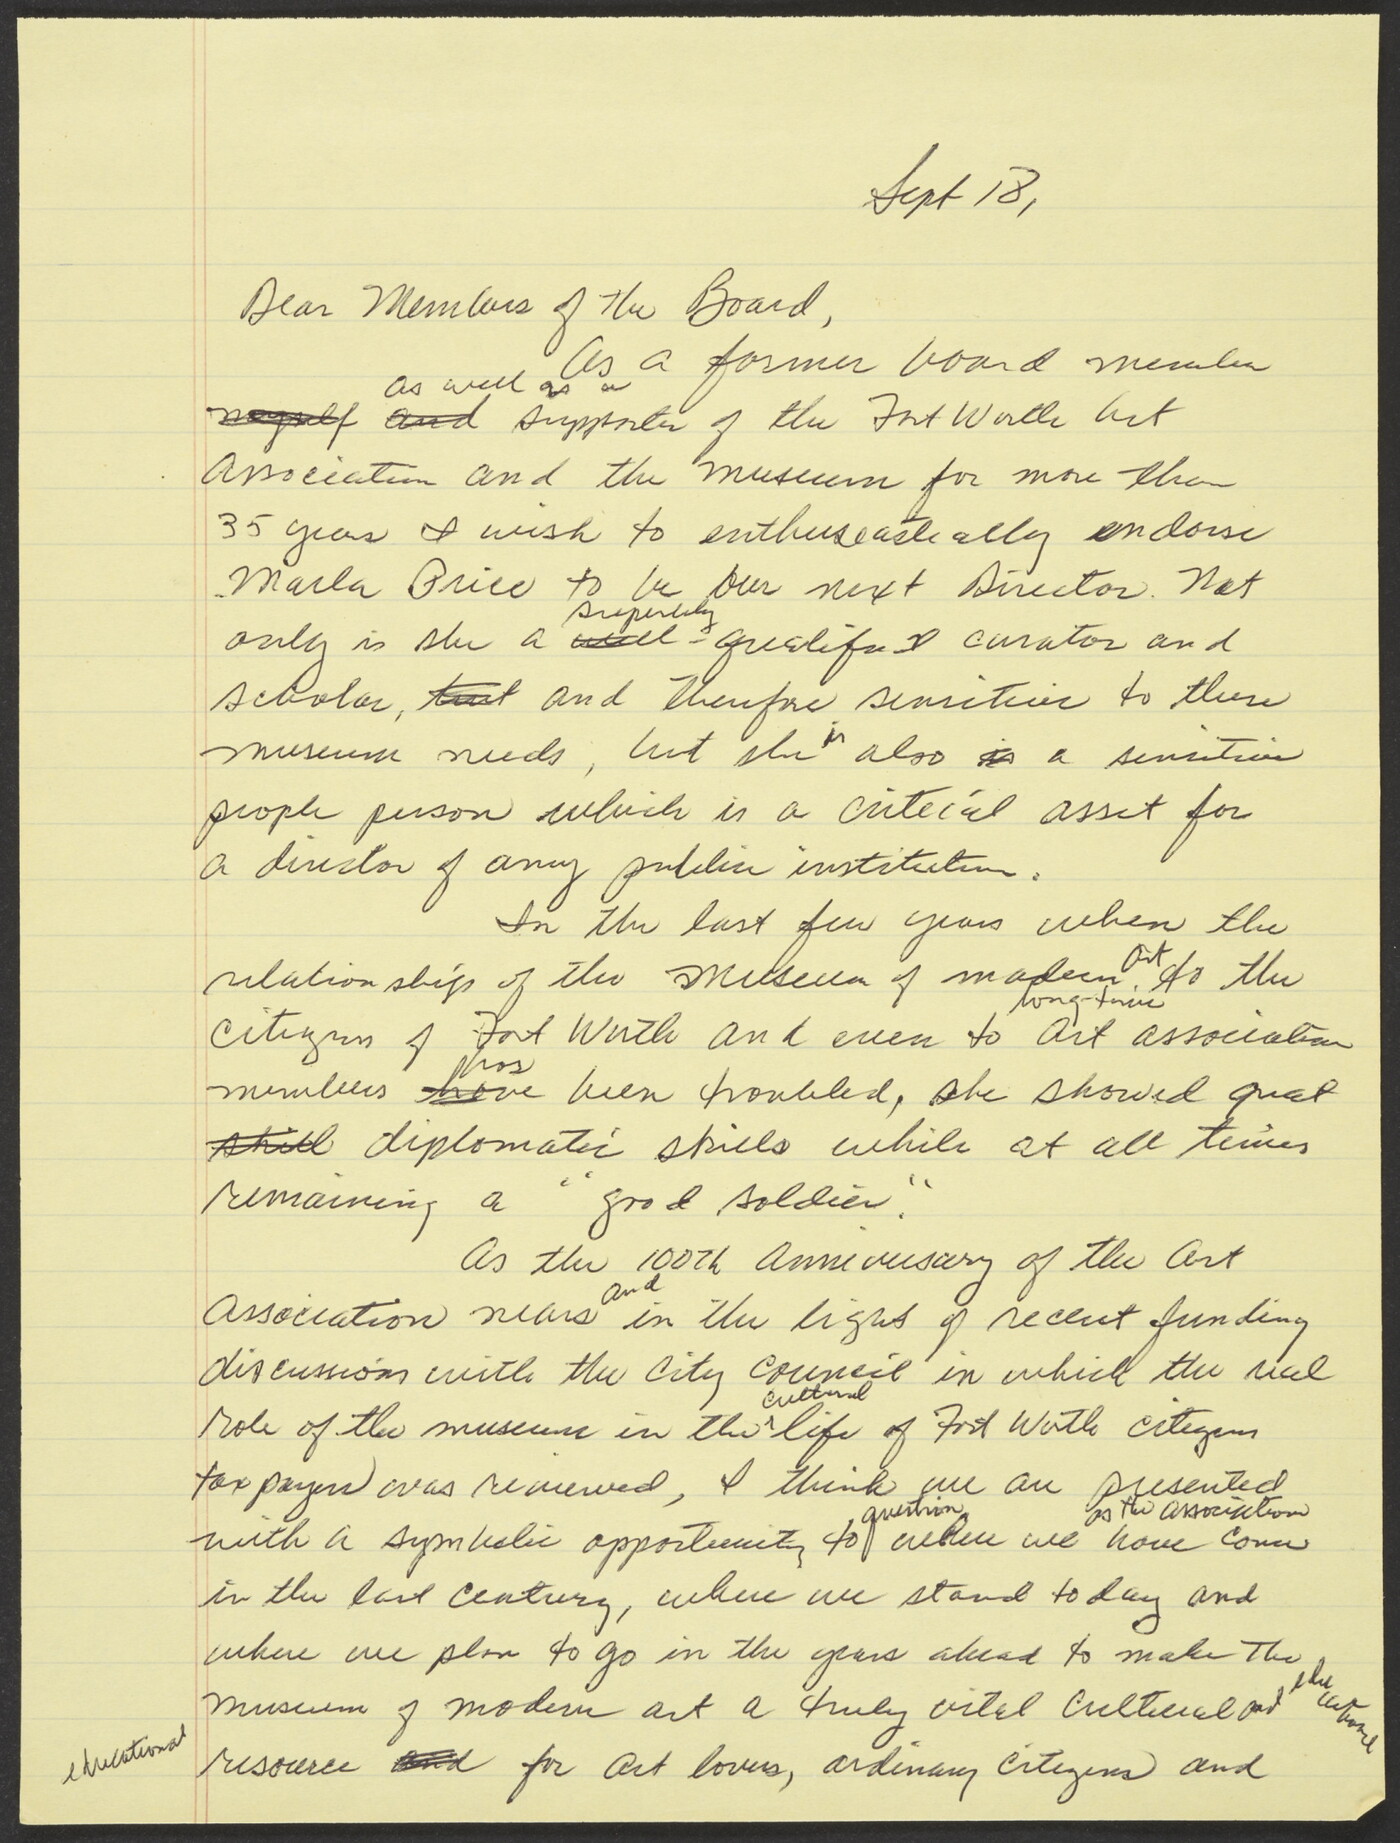 Sept 18,
Dear Members of the Board,
As a former board member
as well as a
myself and supporter of the Fort Worth Art
Association and the Museum for more than
35 years I wish to enthuseastically endorse
Marla Price to be our next Director. Not
superbly
only is she a well-qualified curator and
scholar, but and therefore sensitive to these
museum needs, but she is also is a sensitive
people person which is a critical asset for
a director of any public institution.
In the last few years when the
relationship of the Museum of modern Art to the
long-time
citizens of Fort Worth and even to Art association
has
members have been troubled, she showed great
skill diplomatic skills while at all times
remaining a "good soldier".
As the 100th Anniversary of the Art
and
Association nears in the light of recent funding
discussions with the City Council in which the real
cultural
role of the museum in the life of Fort Worth citizens
taxpayers) was reviewed, I think we are presented
question as the association
with a symbolic opportunity to where we have come
in the last century, where we stand today and
where we plan to go in the years ahead to make the
museum of modern art a truly vital cultural and educational
educational
resource and for art lovers, ordinary citizens and